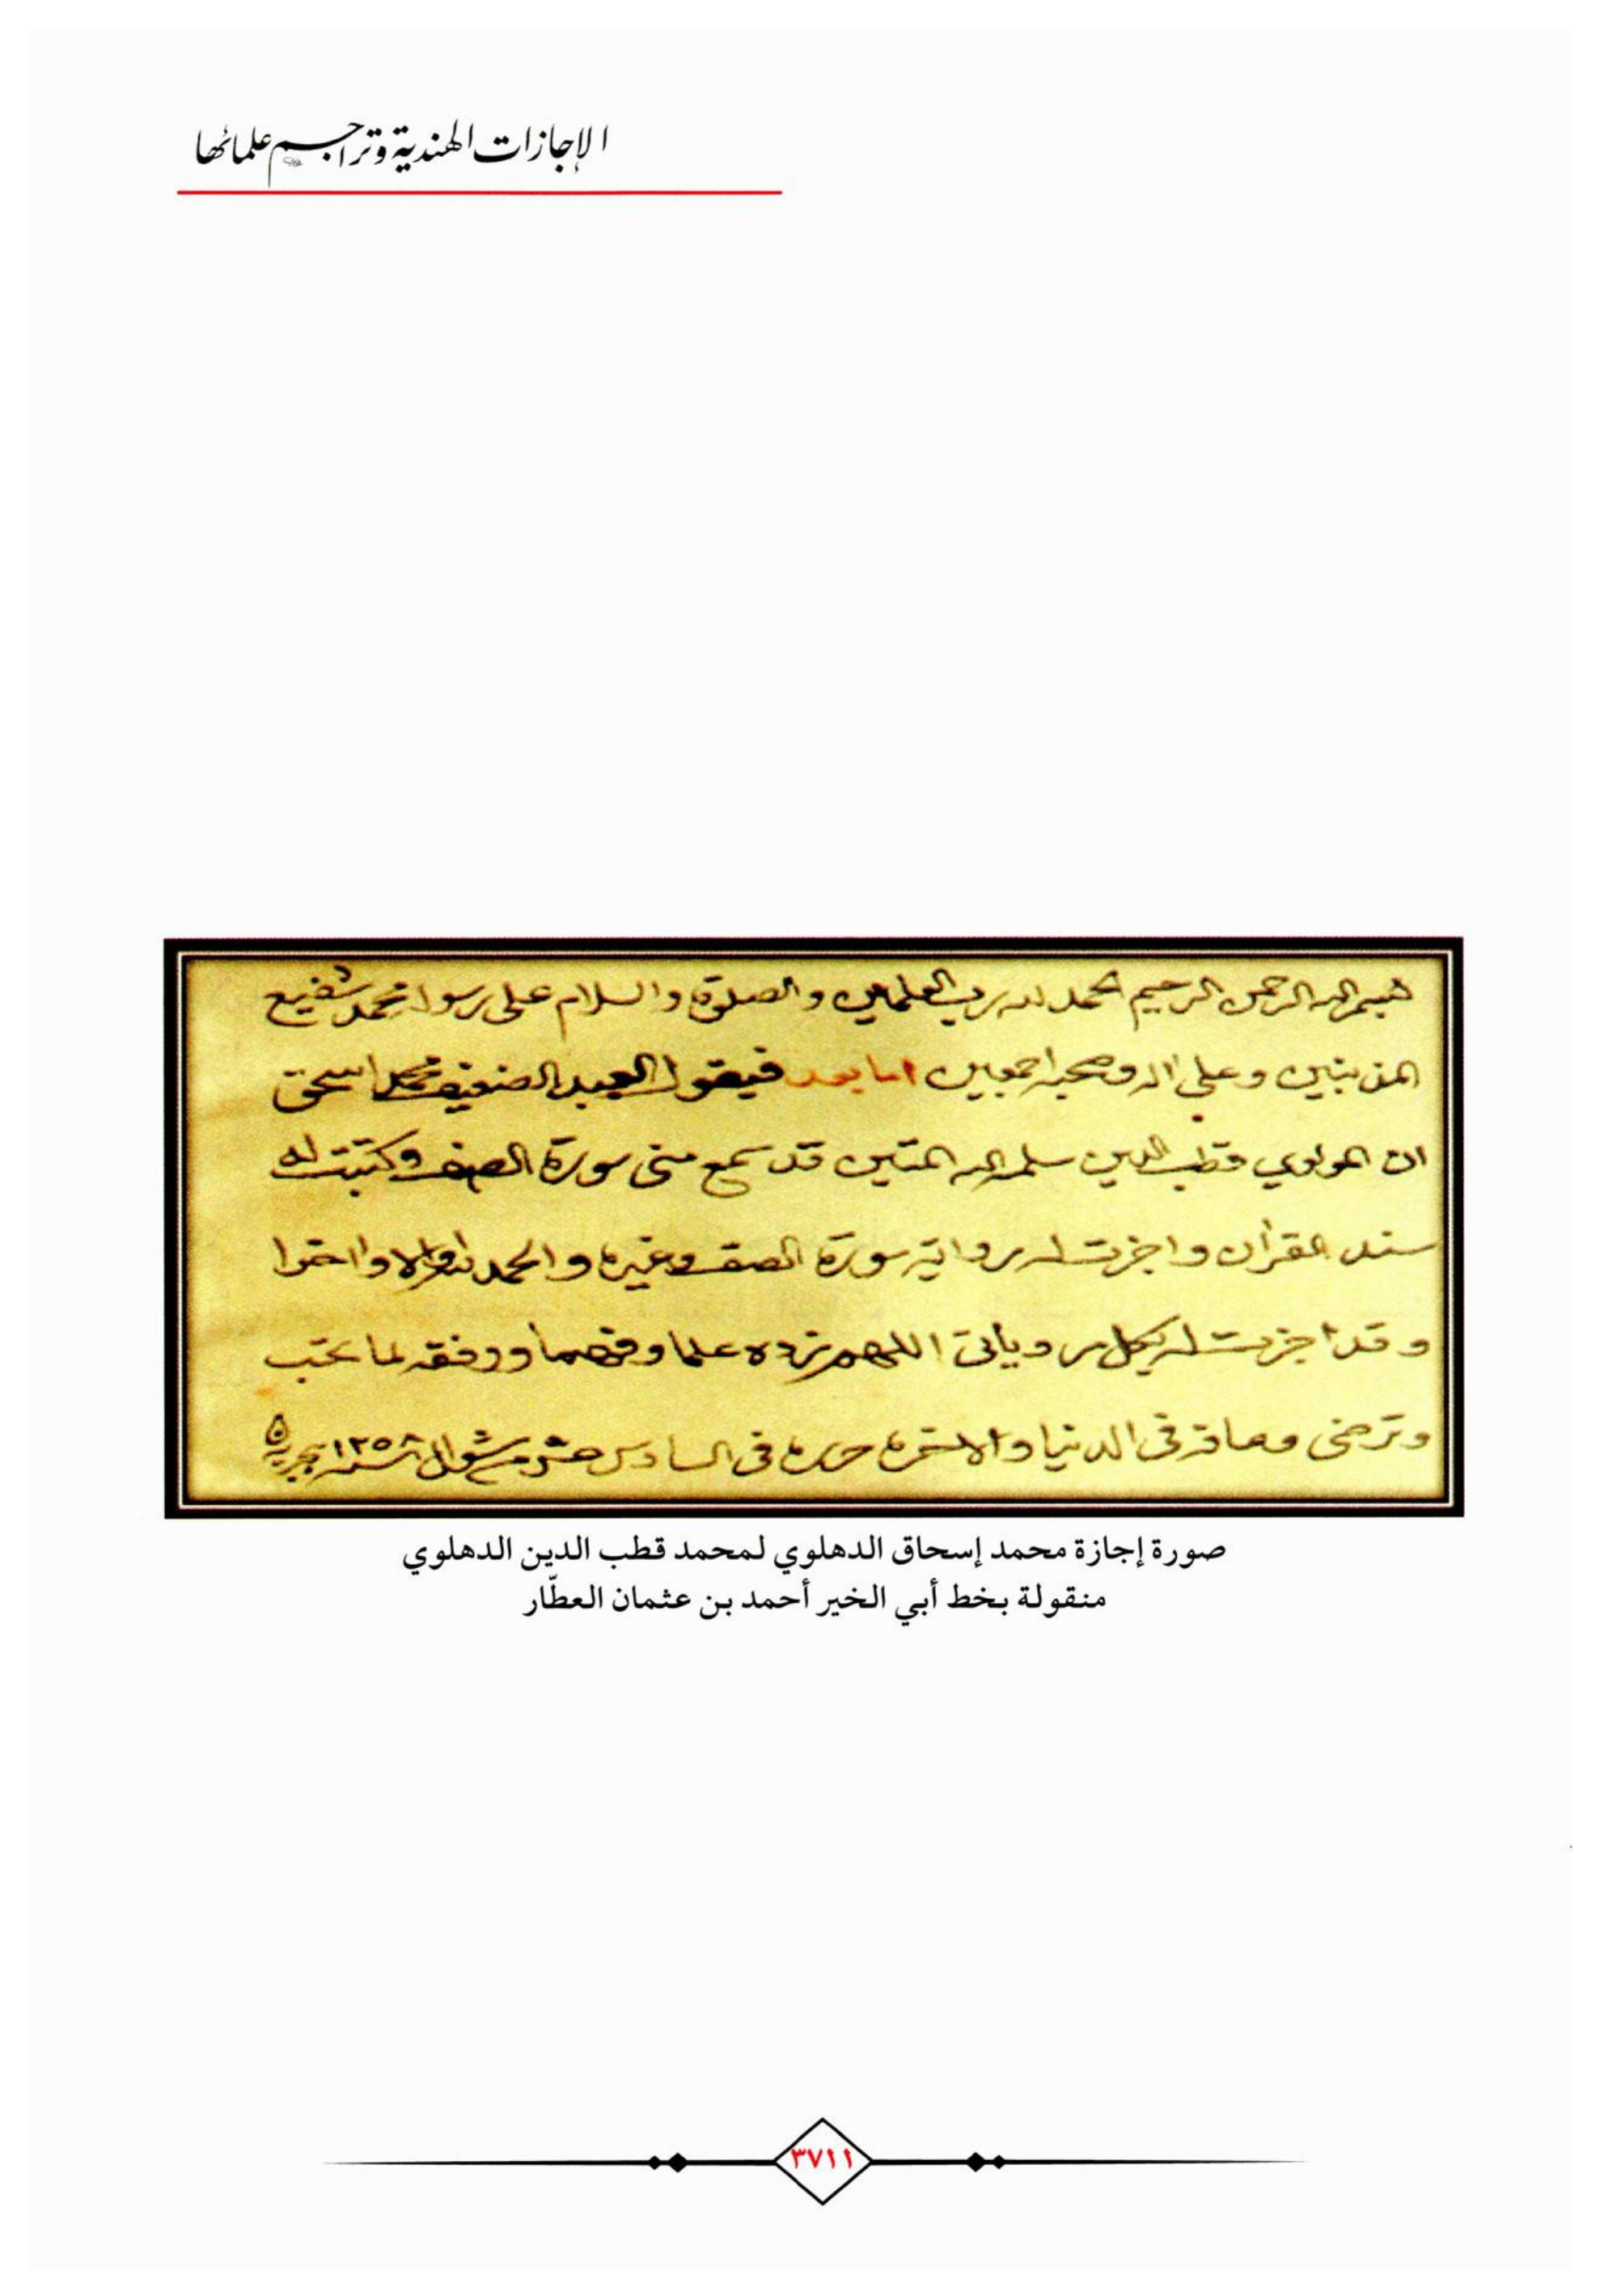 الإجازات الهندية وتراجم علمائها
بسم الله الرحمن الرحيم الحمد لله رب العلمين والصلوة والسلام على رسوله محمد شفيع
المذنبين وعلى اله وصحبه اجمعين اما بعد فيقول العبد الضعيف محمد اسحق
ان المولوي قطب الدين سلمه الله المتين قد سمع مني سورة الصف وكتبت له
سند القرآن واجزت له رواية سورة الصف وغيره والحمد لله اولا واخرا
وقد اجزت له بكل مروياتى اللهم زده علما وفهما ووفقه لما تحب
وترضى فى الدنيا والاخرة حرره فى السادس عشر من شوال سنة ١٢٥٨ هجرية
صورة إجازة محمد إسحاق الدهلوي لمحمد قطب الدين الدهلوي
منقولة بخط أبي الخير أحمد بن عثمان العطّار
٣٧١١